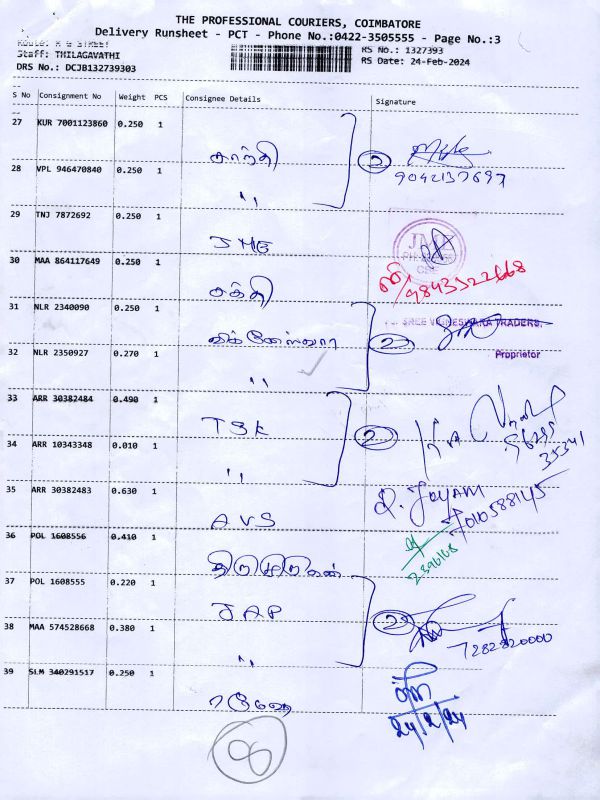 THE PROFESSIONAL COURIERS, COIMBATORE
Delivery Runsheet - PCT - Phone No.:0422-3505555 - Page No.:3
Staff: THILAGAVATHI
RS No.: 1327393
DRS No.: DCJB132739303
RS Date: 24-Feb-2024
S No Consignment No Weight PCS Consignee Details Signature
27 KUR 7001123860 0.250 1
காந்தி
2
9042137697
28 VPL 946470840 0.250 1
"
29 TNJ 7872692 0.250 1
JMG
JMG
30 MAA 864117649 0.250 1
9843522668
சக்தி
31 NLR 2340090 0.250 1
SREE VIGNESHWARA TRADERS,
விக்னேஸ்வரா
2
Proprietor
32 NLR 2350927 0.270 1
"
33 ARR 30382484 0.490 1
TSK
2
35341
34 ARR 10343348 0.010 1
"
35 ARR 30382483 0.630 1
R. Jayam
7010588145
AVS
36 POL 1608556 0.410 1
2396168
37 POL 1608555 0.220 1
JAP
2
7282820000
38 MAA 574528668 0.380 1
"
39 SLM 340291517 0.250 1
ரமேஷ்
24/2/24
8